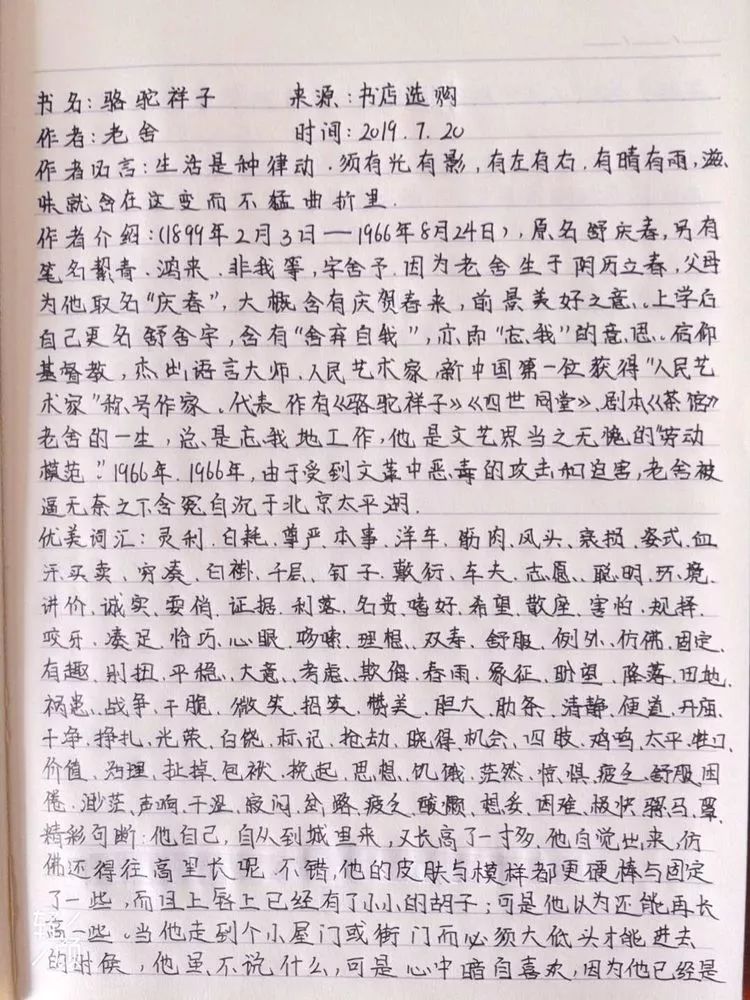 书名:骆驼祥子 来源:书店选购
作者:老舍 时间:2019.7.20
作者名言:生活是种律动.须有光有影,有左有右.有晴有雨,滋
味就含在这变而不猛曲折里.
作者介绍:(1899年2月3日—1966年8月24日),原名舒庆春,另有
笔名絜青.鸿来.非我等,字舍予.因为老舍生于阴历立春,父母
为他取名“庆春”,大概含有庆贺春来,前景美好之意.上学后
自己更名舒舍字,含有“舍弃自我”,亦即“忘我”的意思.信仰
基督教,杰出语言大师.人民艺术家,新中国第一位获得“人民艺
术家”称号作家.代表作有《骆驼祥子》《四世同堂》、剧本《茶馆》
老舍的一生,总是忘我地工作,他是文艺界当之无愧的“劳动
模范”.1966年.1966年,由于受到文革中恶毒的攻击和迫害,老舍被
逼无奈之下含冤自沉于北京太平湖.
优美词汇:灵利.白耗.尊严.本事、洋车、筋肉、风头、衰损、姿式、血
汗、买卖、穷凑、白褂、千层、钉子、敷衍、车夫、志愿、聪明、环境、
讲价、诚实、要俏、证据、利落、名贵、嗜好、希望、散座、害怕、规择、
咬乐、凑足、恰巧、心眼、哆嗦、理想、双寿、舒服、例外、仿佛、固定、
有趣、别扭、平稳、大意、考虑、欺侮、春雨、象征、盼望、降落、田地、
祸患、战争、干脆、微笑、招买、赞美、胆大、肋条、清静、便道、丹庙、
干净、挣扎、光荣、白饶、标记、抢劫、晓得、机会、四肢、鸡鸣、太平、牲口、
价值、治理、扯掉、包袱、挽起、思想、饥饿、茫然、惊惧、疲乏、舒服、困
倦、渺茫、声响、干湿、寂闷、岔路、疲乏、酸懒、想妥、困难、极快、骡马、
精彩句断:他自己,自从到城里来,又长高了一寸多.他自觉出来,仿
佛还得往高里长呢.不错,他的皮肤与模样都更硬棒与固定
了一些,而且上唇上已经有了小小的胡子;可是他以为还能再长
高一些.当他走到个小屋门或街门而必须大低头才能进去
的时候,他虽不说什么,可是心中暗自喜欢,因为他已经是